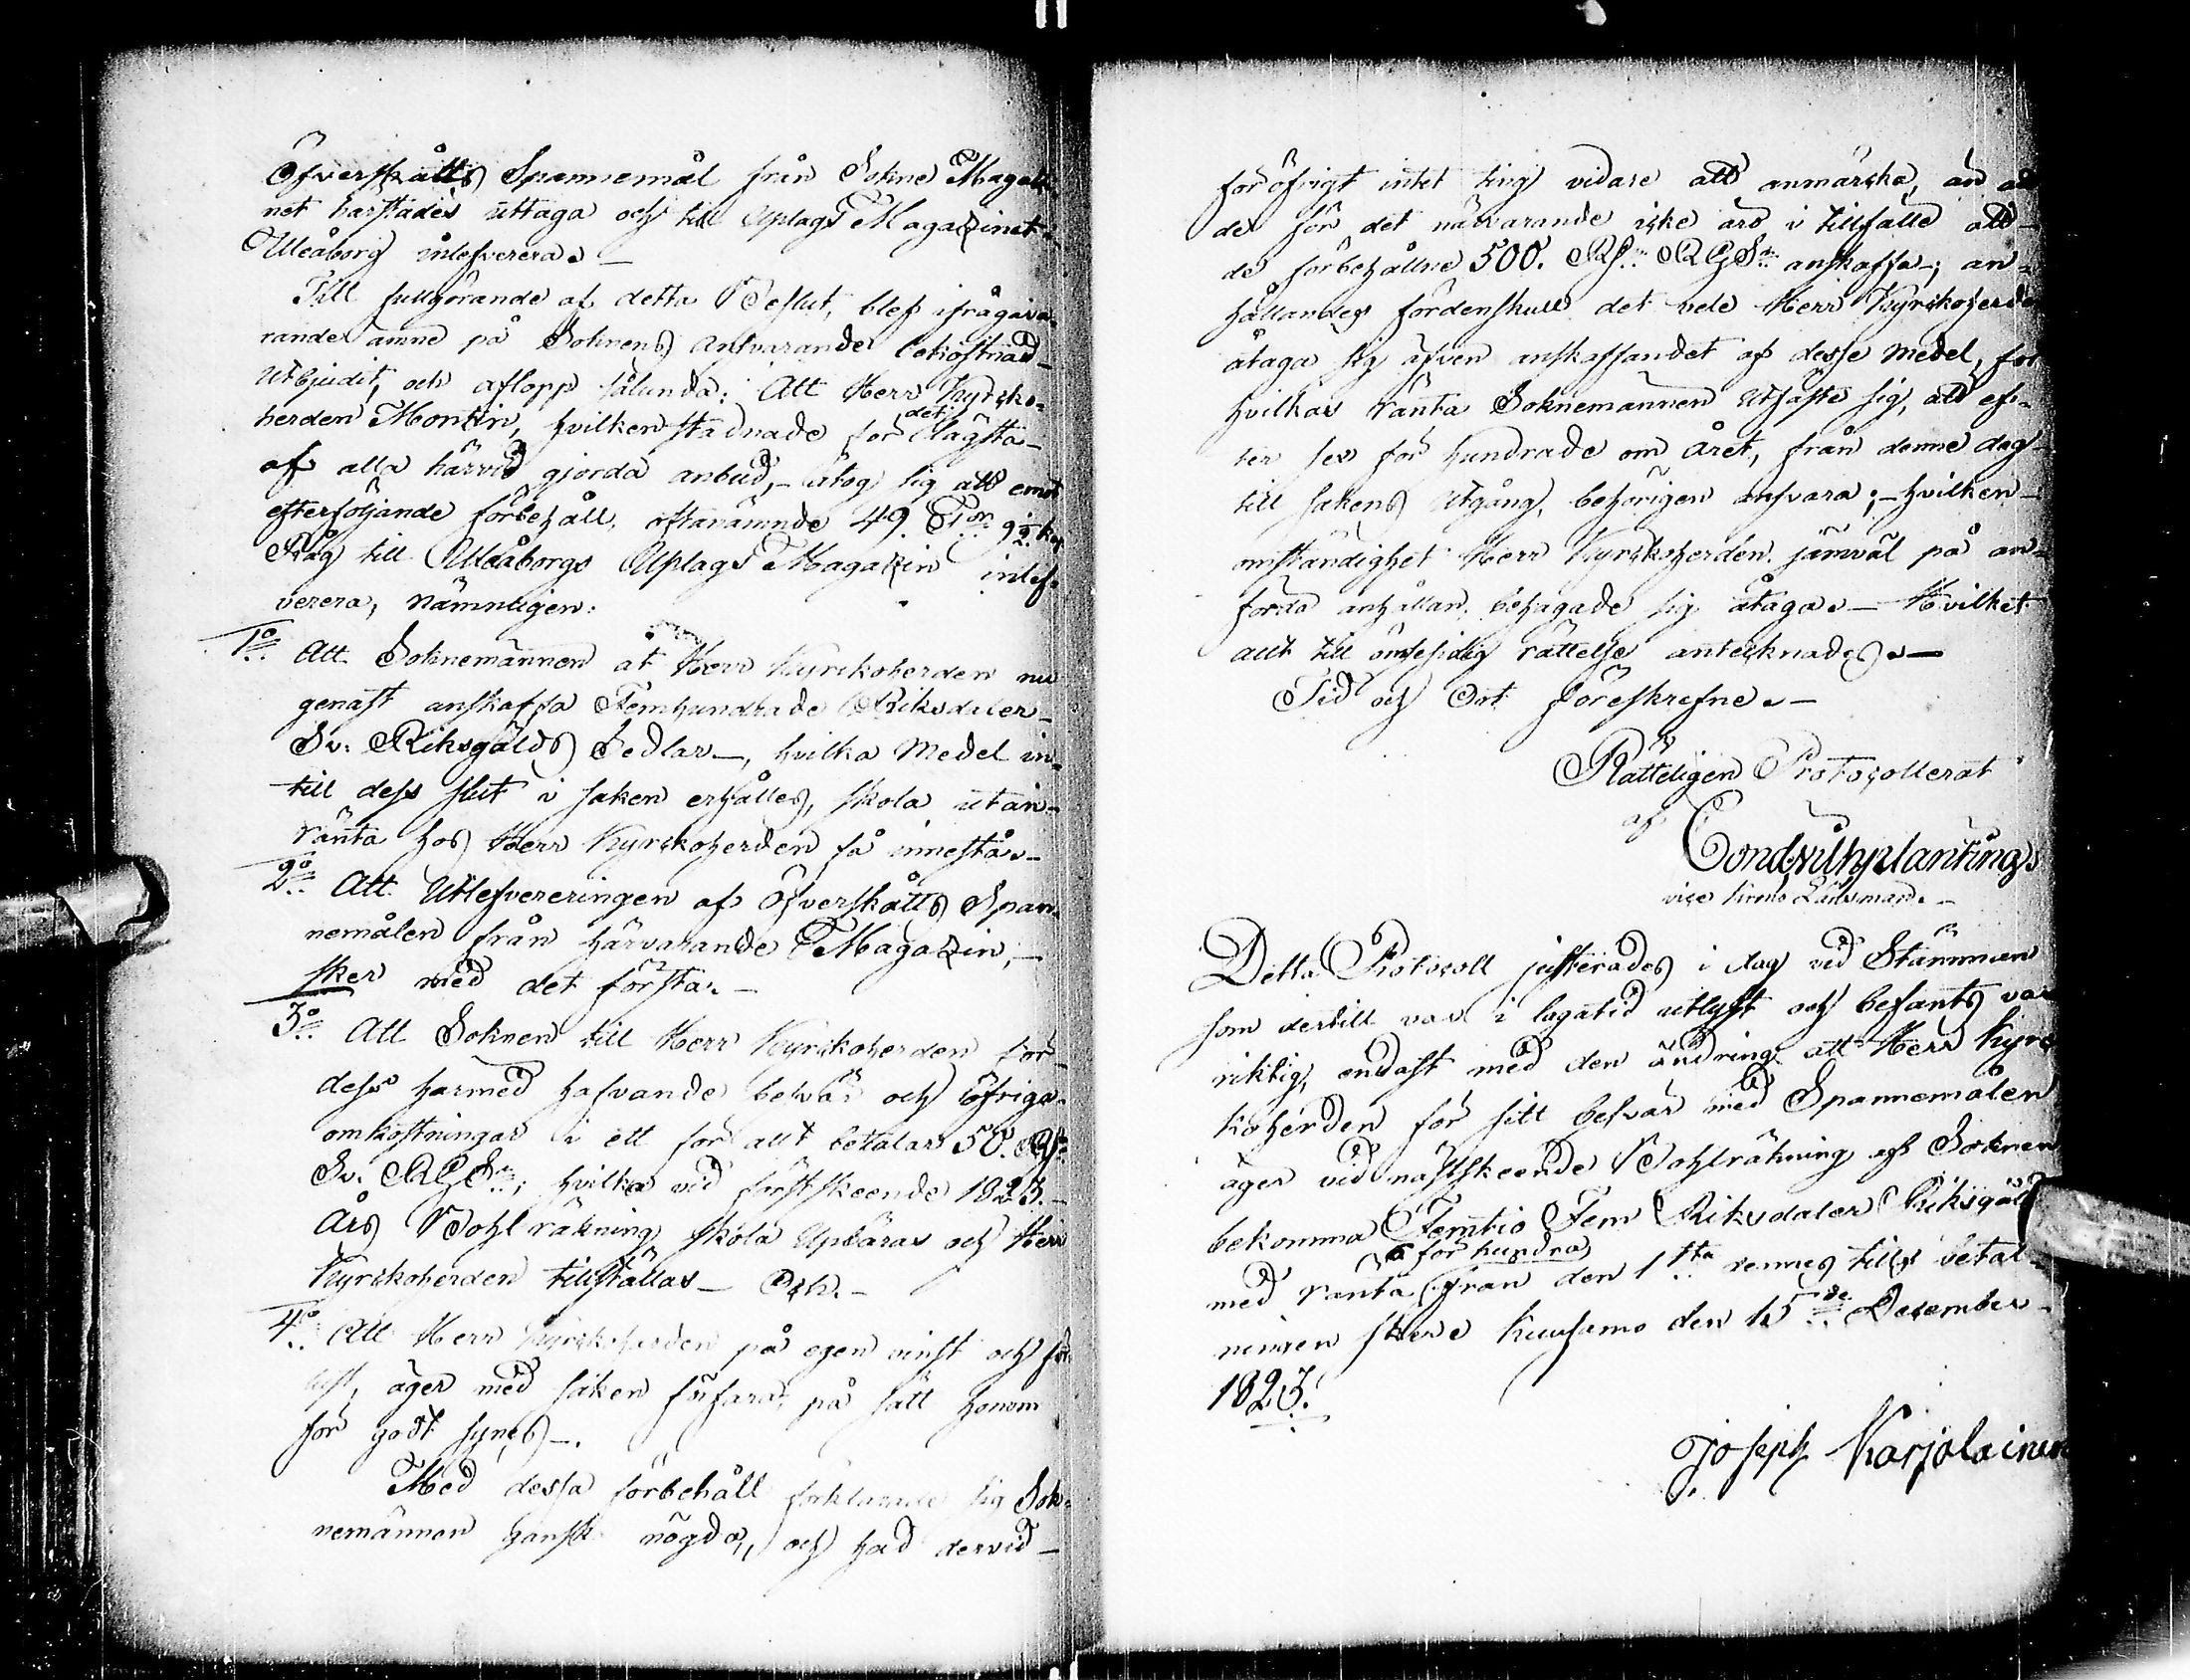 Öfverskåtts Spannemål från Sokne Maga-
net härstädes uttaga och till Uplags Magazinet i
Uleåborg inlefverera. —
Till fullgörande af detta Beslut, blef ifrågava-
rande ämne på Soknens ansvarande bekostnad
Utbjudit, och aflopp sålunda: Att Herr Kyrko-
herden Montin, hvilken stadnade för det lägsta
af alla härvid gjorda anbud, – åtog sig att emot
efterföljande förbehåll, oftanämnde 49. T:or 9½ kap
Råg till Uleåborgs Uplags Magazin inlef-
verera, nämnligen:
1:o Att Soknemännen åt Herr Kyrkoherden nu
genast anskaffa Femhundrade Riksdaler
Sv. Riksgälds Sedlar —, hvilka Medel in-
till dess slut i saken erhålles, skola utan
ränta hos Herr Kyrkoherden få innestå. —
2:o Att Utlefvereringen af Öfverskåtts Span-
nemålen från härvarande Magazin, —
sker med det första. —
3:o Att Soknen till Herr Kyrkoherden för
dess härmed hafvande besvär och öfriga
omkostningar i ett för allt betalar 50. Rd:r
Sv. RGS:r; hvilka vid förstskeende 1823. —
Års Bohlräkning skola Upbäras och Herr
Kyrkoherden tillställas — Och. —
4:o Att Herr Kyrkoherden på egen vinst och för-
lust, äger med saken förfara, på sätt honom
för godt synes —.
Med dessa förbehåll förklarade sig Sok-
nemännen ganska nögda, och had dervid —
för öfrigt intet ting vidare att anmärka, än att
de för det närvarande icke äro i tillfälle att
de förbehållne 500. Rd:r RGS:r anskaffa —; an-
hållandes fördenskull det ville Herr Kyrkoherden
åtaga sig äfven anskaffandet af desse Medel, för
hvilkas ränta Soknemännen Utfäste sig, att ef-
ter sex för hundrade om året, från denne dag
till sakens Utgång, behörigen ansvara; – hvilken
omständighet Herr Kyrkoherden jämväl på an-
förda anhållan, behagade sig åtaga. — Hvilket
allt till ömsesidig rättelse antecknades. —
Tid och Ort föreskrefne. —
Rätteligen Protocollerat
af
Cond. Wilh. Planting.
vice krono Länsman. —
Detta Protocoll justerades i dag vid Stämman
som dertill var i lagatid utlyst och befants vara
riktig, endast med den ändring att Herr Kyrc-
koherden för sitt besvär med Spannemålen
äger vid nästskeende Bohlräkning af Soknen
bekomma Femtio Fem Riksdaler Riksgäld
med ränta 6 för hundra från den 1:sta dennes tills betal-
ningen sker. Kuusamo den 15:de December
1823.
Joseph Karjalainen